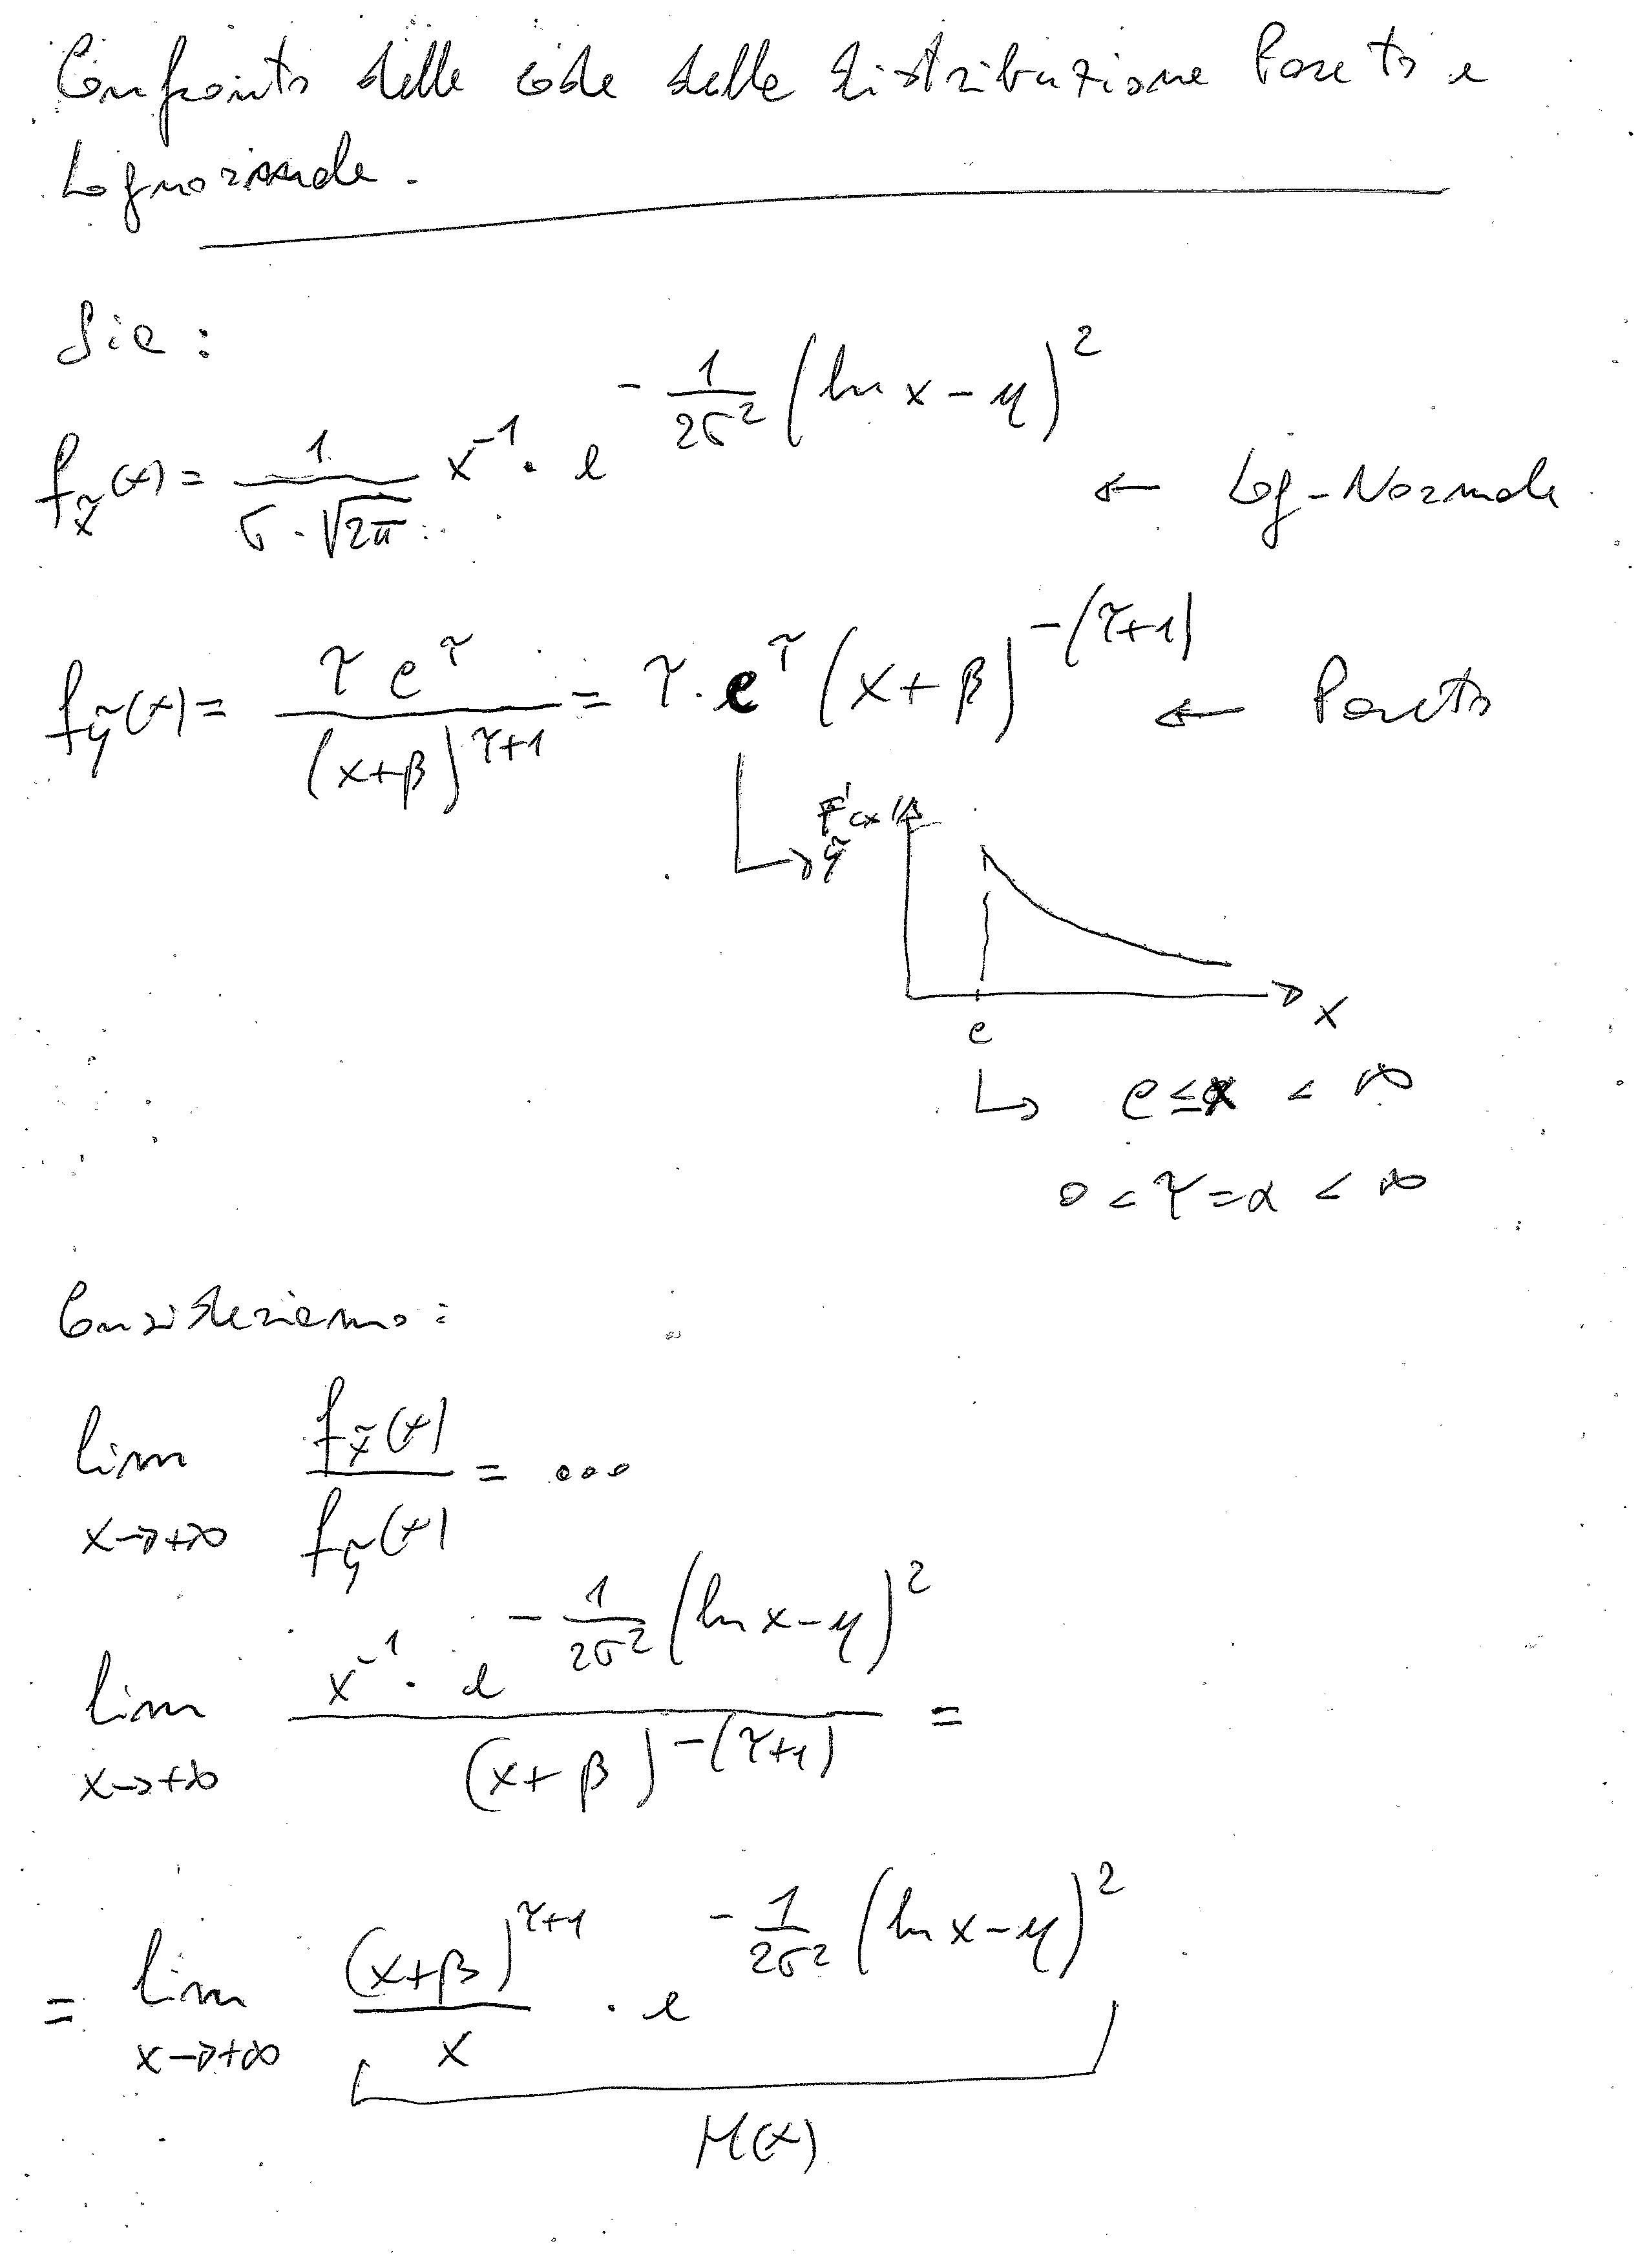 Confronto delle code delle distribuzione Pareto e
Lognormale.
Sia:
f_x̃(x) = 1/(σ·√2π) x^-1 · e^(-1/(2σ²) (ln x - μ)²) ← Log-Normale
f_ỹ(x) = τ c^τ / (x+β)^(τ+1) = τ · c^τ (x+β)^-(τ+1) ← Pareto
F'_ỹ(x)
x
c
↳ c ≤ x < ∞
0 < τ = α < ∞
Consideriamo:
lim x→+∞ f_x̃(x) / f_ỹ(x) = ...
lim x→+∞ x^-1 · e^(-1/(2σ²) (ln x - μ)²) / (x+β)^-(τ+1) =
= lim x→+∞ (x+β)^(τ+1) / x · e^(-1/(2σ²) (ln x - μ)²)
H(x)